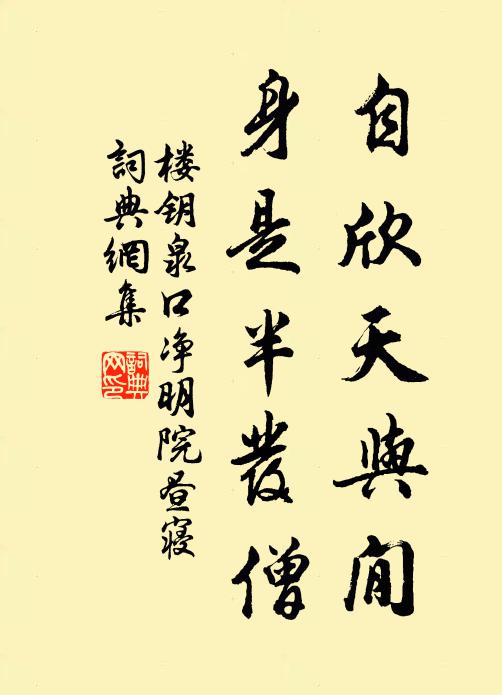 自欣天與閒
身是半發僧
楼钥泉口净明院昼寝
詞典網集
詞典
网印